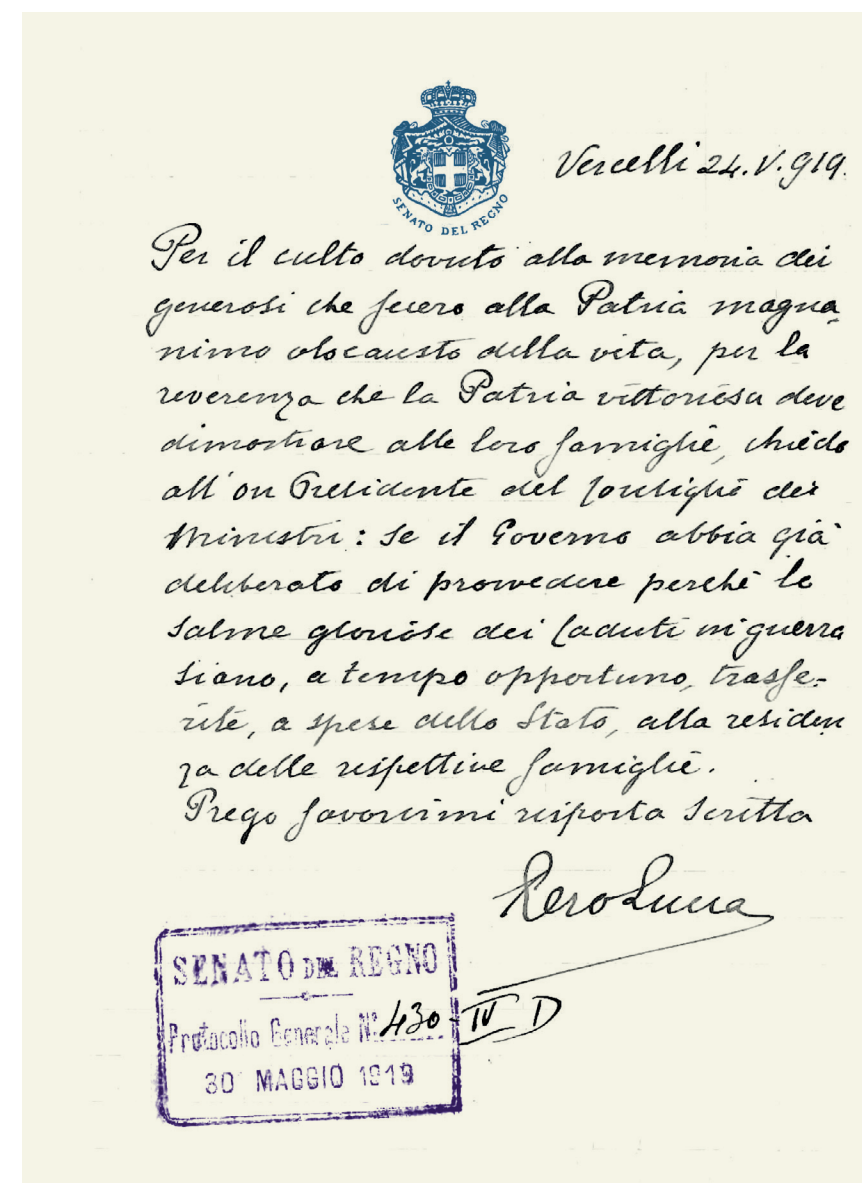 SENATO DEL REGNO
Vercelli 24.V.919.
Per il culto dovuto alla memoria dei
generosi che fecero alla Patria magna-
nimo olocausto della vita, per la
reverenza che la Patria vittoriosa deve
dimostrare alle loro famiglie, chiedo
all'on Presidente del Consiglio dei
Ministri: se il Governo abbia già
deliberato di provvedere perchè le
salme gloriose dei Caduti in guerra
siano, a tempo opportuno, trasfe-
rite, a spese dello Stato, alla residen
za delle rispettive famiglie.
Prego favorirmi risposta scritta
Lucca
SENATO DEL REGNO
Protocollo Generale N° 430-IV D
30 MAGGIO 1919